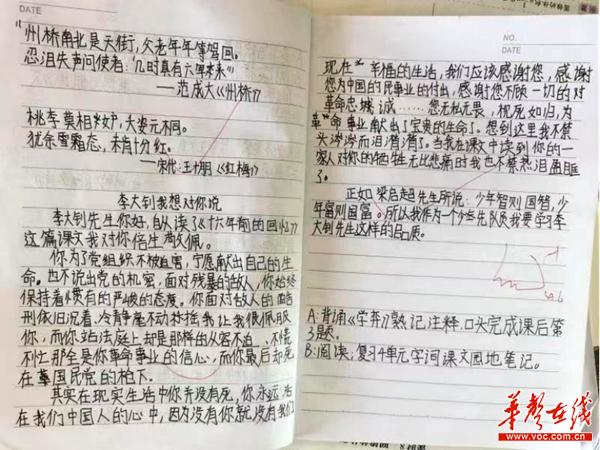 DATE
"州桥南北是天街,父老年年等驾回。
忍泪失声问使者:"几时真有六军来"
——范成大《州桥》
桃李莫相妒,大姿元不同。
犹余雪霜态,未肯十分红。
——宋代:王十朋《红梅》
李大钊我想对你说
李大钊先生你好,自从读了《十六年前的回忆》
这篇课文我对你倍生敬佩。
你为了党组织不被迫害,宁愿献出自己的生
命。也不说出党的机密,面对残暴的敌人,你始终
保持着惯有的严峻的态度。你面对敌人的酷
刑依旧沉着、冷静毫不动摇我让我很佩服
你,而你站法庭上却是那样的从容不迫、不慌
不忙那全是你革命事业的信心,而你最后却死
在国民党的枪下.
其实在现实生活中你并没有死,你永远活
在我们中国人的心中,因为没有你就没有我们
NO.
DATE
现在幸福的生活,我们应该感谢您,感谢
您为中国的民事业的付出,感谢您不顾一切的对
革命忠城诚……您无私无畏,视死如归,为
革命事业献出了宝贵的生命了。想到这里我不禁
头涔涔而泪潸潸了。当我在课文中读到你的一
家人对你的牺牲无比悲痛时我也不禁热泪盈眶
了。
正如梁启超先生所说:少年智则国智,少
年富则国富。所以我作为一个少先队员我要学习李
大钊先生这样的品质。
A:背诵《学弈》熟记注释.口头完成课后第
3题。
B:阅读,复习4单元字词课文园地笔记。
华声在线
www.voc.com.cn